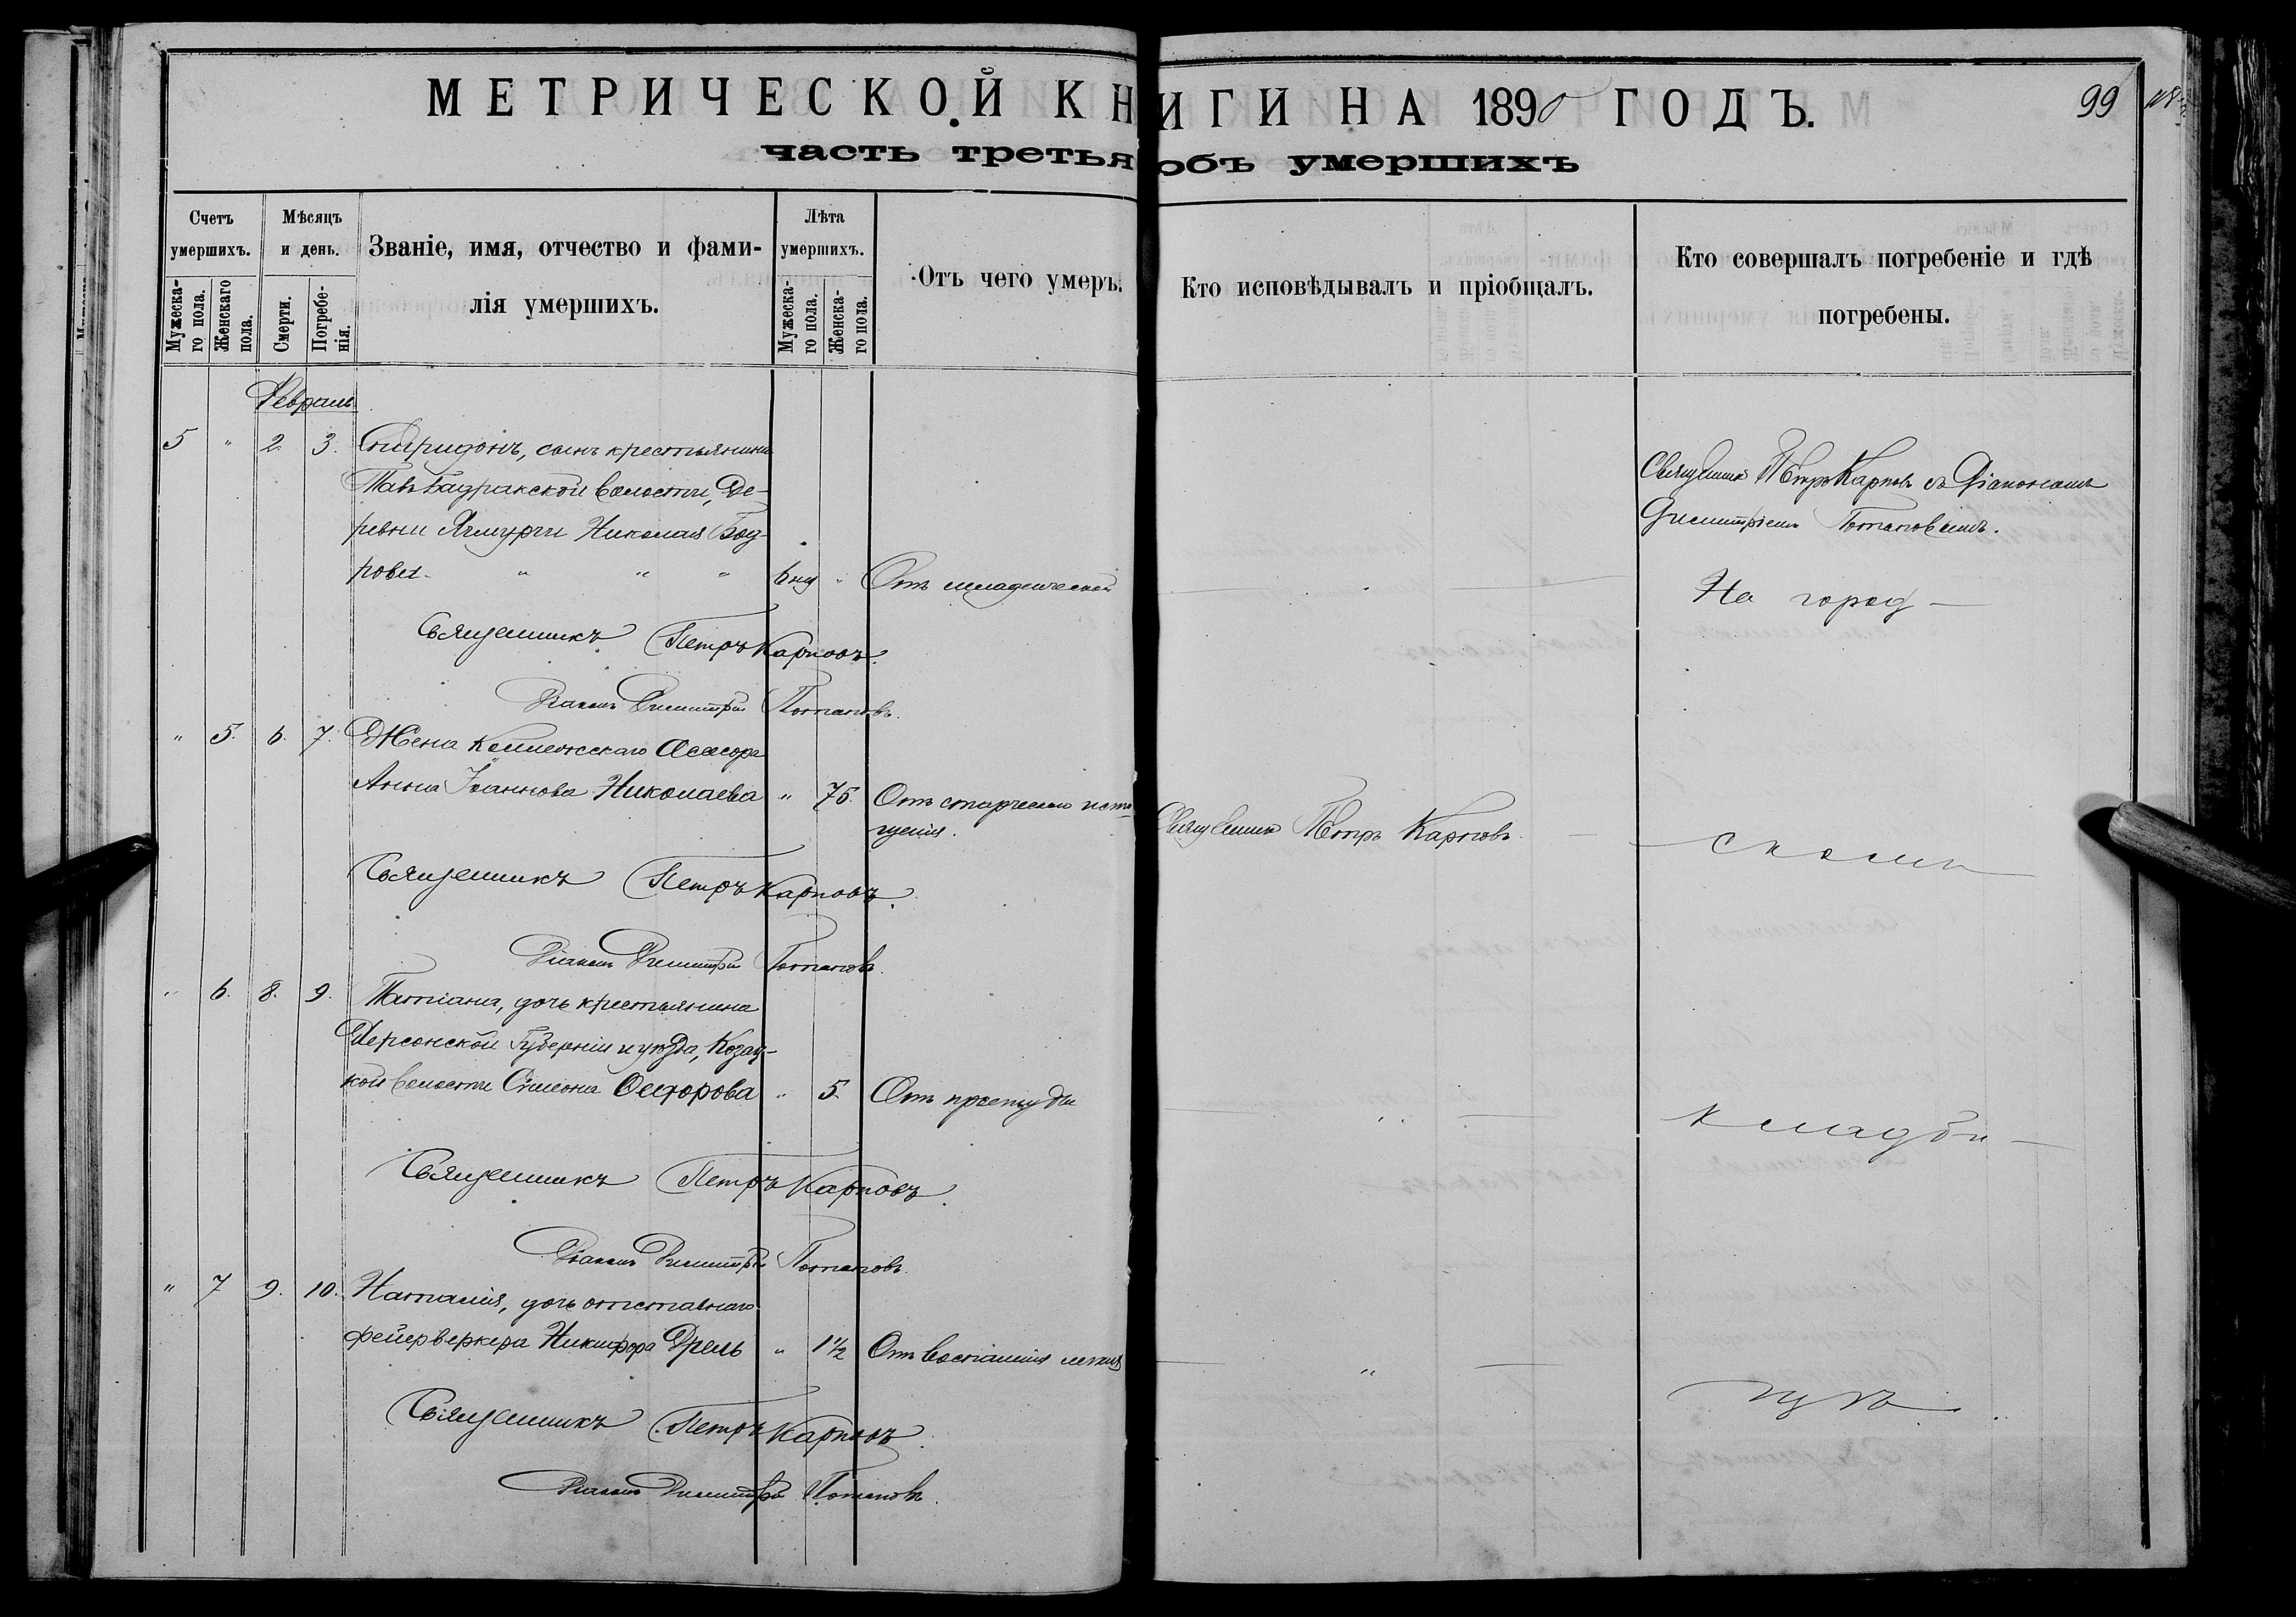 МЕТРИЧЕСКОЙ КНИГИ НА 1890 ГОДЪ.
99
часть третья объ умершихъ
Счетъ умершихъ.
Мѣсяцъ и день.
Званіе, имя, отчество и фами-
лія умершихъ.
Лѣта умершихъ.
Отъ чего умеръ.
Кто исповѣдывалъ и пріобщалъ.
Кто совершалъ погребеніе и гдѣ
погребены.
Мужеска-го пола.
Женскаго пола.
Смерти.
Погребе-нія.
Мужеска-го пола.
Женска-го пола.
Февраль
5 " 2. 3. Спиридонъ, сынъ крестьянина
волости, Де-
ревни Николая Бод-
рова. " " " 6 нд " Отъ младенческой
Священникъ Петръ Карповъ съ Діакономъ
Димитріемъ Потаповымъ.
На город-
Священникъ Петръ Карповъ.
Діаконъ Димитрій Потаповъ.
" 5. 6. 7. Жена Коллежскаго Асесора
Анна Іоаннова Николаева " 75. Отъ старческаго исто-
щенія.
Священник Петръ Карповъ.
скомъ
Священникъ Петръ Карповъ.
Діаконъ Димитрій Потаповъ.
" 6. 8. 9. Татіана, дочь крестьянина
Херсонской Губерніи и уѣзда, Козац-
кой волости Симеона " 5. Отъ простуды
"
кладби-
Священникъ Петръ Карповъ.
Діаконъ Димитрій Потаповъ.
" 7 9. 10. Наталія, дочь отставнаго
фейерверкера Никифора Дрель " 1½ Отъ воспаленія легкихъ
"
щѣ.
Священникъ Петръ Карповъ.
Діаконъ Димитрій Потаповъ.